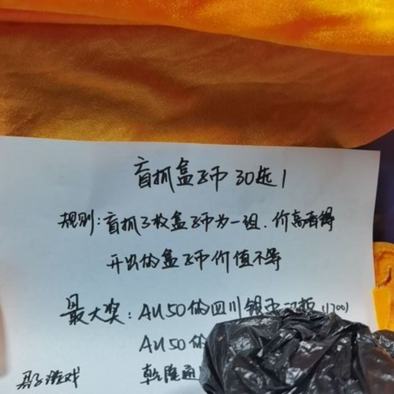 盲抓盒子币 30选1
规则:盲抓3枚盒子币为一组.价高者得
开出的盒子币价值不等
最大奖:AU50的四川银币汉版(1200)
AU50的
乾隆通
游戏